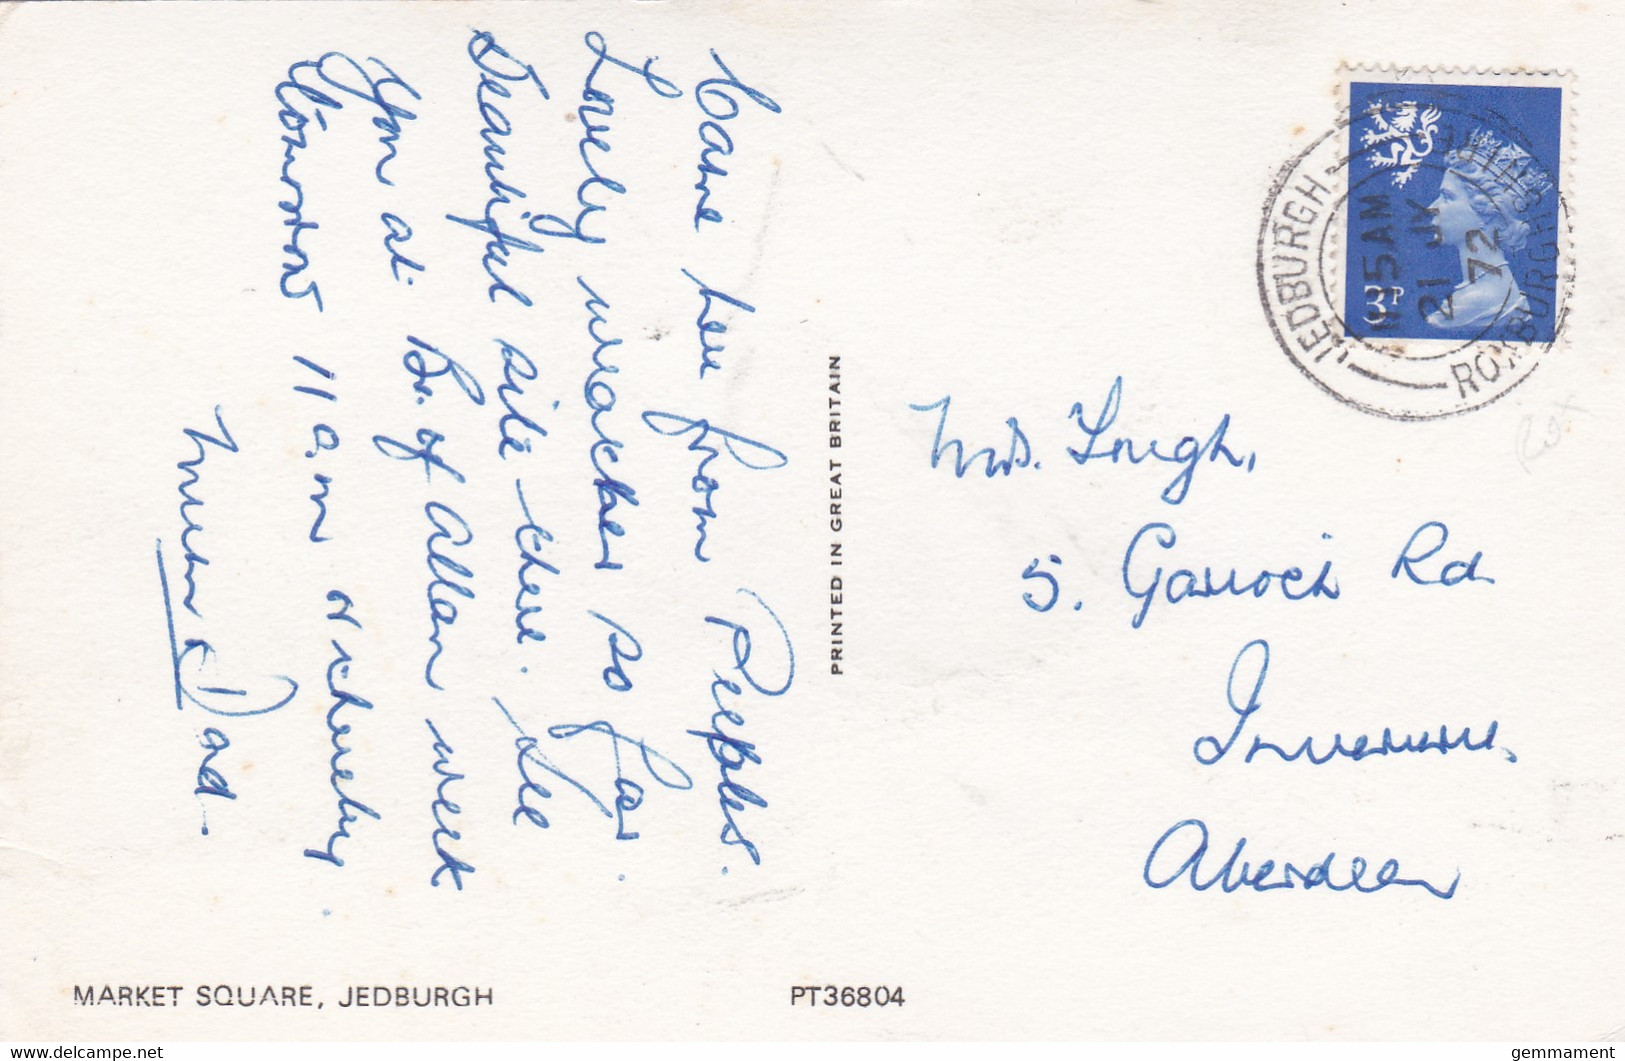 Came here from Peebles.
Lovely weather so far.
Beautiful site here. See
you at Br. of Allan week
tomorrow 11 a.m
Mum & Dad.
PRINTED IN GREAT BRITAIN
JEDBURGH
ROXBURGHSHIRE
1115AM
21 JY
72
3P
Mrs. Lough,
5. Garrioch Rd
Inverurie,
Aberdeen
MARKET SQUARE, JEDBURGH
PT36804
www.delcampe.net
gemmament